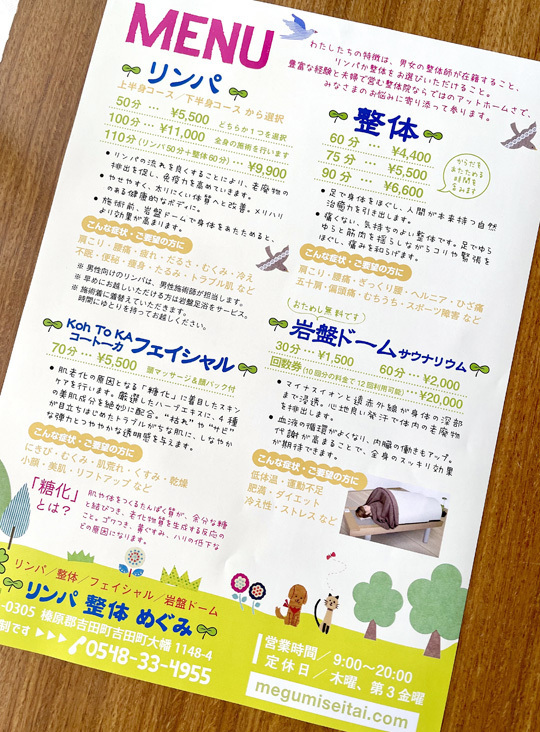 MENU
わたしたちの特徴は、男女の整体師が在籍すること、
リンパか整体をお選びいただけること。
豊富な経験と夫婦で営む整体院ならではのアットホームさで、
みなさまのお悩みに寄り添って参ります。
リンパ
上半身コース/下半身コース から選択
50分 … ¥5,500 どちらか1つを選択
100分 … ¥11,000 全身の施術を行います
110分(リンパ50分+整体60分) … ¥9,900
• リンパの流れを良くすることにより、老廃物の
排出を促し、免疫力を高めていきます。
• やせやすく、太りにくい体質へと改善。メリハリ
のある健康的なボディに。
• 施術前、岩盤ドームで身体をあたためると、
より効果が高まります。
こんな症状・ご要望の方に
肩こり・腰痛・疲れ・だるさ・むくみ・冷え
不眠・便秘・痩身・たるみ・トラブル肌 など
※ 男性向けのリンパは、男性施術師が担当します。
※ 早めにお越しいただける方は岩盤足浴をサービス。
※ 施術着に着替えていただきます。
時間にゆとりを持ってお越しください。
整体
60分 … ¥4,400
75分 … ¥5,500
90分 … ¥6,600
からだを
あたためる
時間を
含みます
• 足で身体をほぐし、人間が本来持つ自然
治癒力を引き出します。
• 痛くない、気持ちのよい整体です。足でゆら
ゆらと筋肉を揺らしながらコリや緊張を
ほぐし、痛みを和らげます。
こんな症状・ご要望の方に
肩こり・腰痛・ぎっくり腰・ヘルニア・ひざ痛
五十肩・偏頭痛・むちうち・スポーツ障害 など
Koh To KA
コートーカ フェイシャル
70分 … ¥5,500 頭マッサージ&顔パック付
• 肌老化の原因となる「糖化」に着目したスキン
ケアを行います。厳選したハーブエキスに、4種
の美肌成分を絶妙に配合。“枯れ”や“サビ”
が目立ちはじめたトラブルがちな肌に、しなやか
な弾力とつややかな透明感を与えます。
こんな症状・ご要望の方に
にきび・むくみ・肌荒れ・くすみ・乾燥
小顔・美肌・リフトアップ など
「糖化」
とは?
肌や体をつくるたんぱく質が、余分な糖
と結びつき、老化物質を生成する反応の
こと。ゴワつき、黄ぐすみ、ハリの低下な
どの原因になります。
おためし無料です
岩盤ドーム サウナリウム
30分 … ¥1,500 60分 … ¥2,000
回数券(10回分の料金で12回利用可能) … ¥20,000
• マイナスイオンと遠赤外線が身体の深部
まで浸透。心地良い発汗で体内の老廃物
を排出します。
• 血液の循環がよくなり、内臓の働きもアップ。
代謝が高まることで、全身のスッキリ効果
が期待できます。
こんな症状・ご要望の方に
低体温・運動不足
肥満・ダイエット
冷え性・ストレス など
リンパ/整体/フェイシャル/岩盤ドーム
リンパ 整体 めぐみ
-0305 榛原郡吉田町吉田町大幡 1148-4
制です ▶▶▶ 0548-33-4955
営業時間/9:00~20:00
定休日/木曜、第3金曜
megumiseitai.com